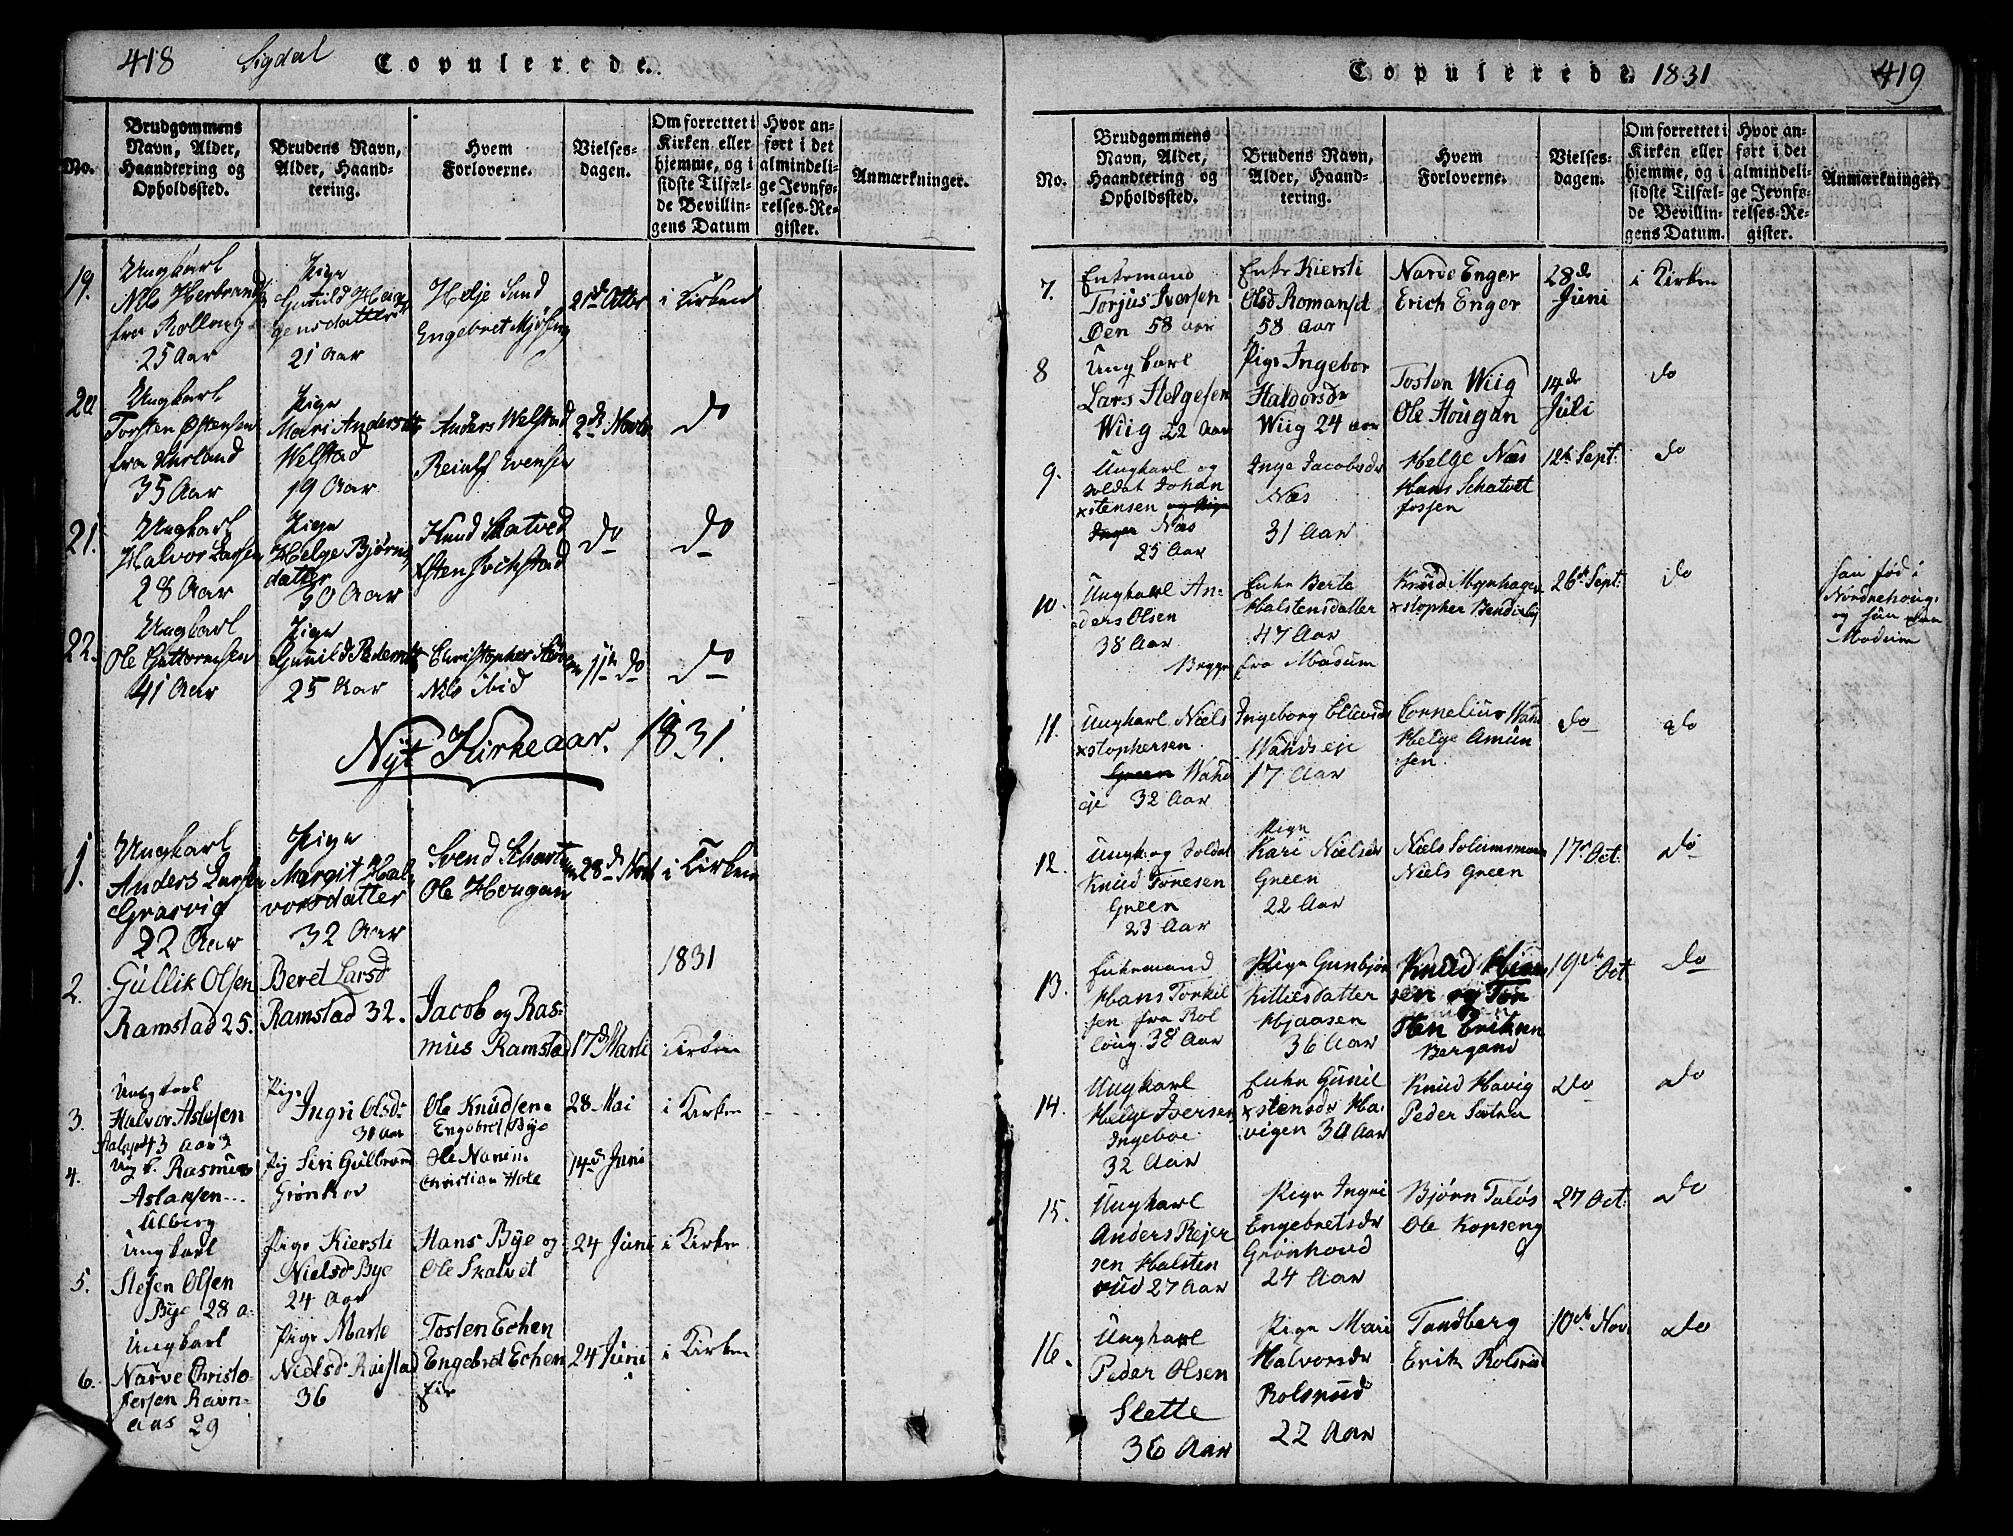 418 Sigdal Copulerede.
No.
Brudgommens Navn, Alder, Haandtering og Opholdssted.
Brudens Navn, Alder, Haandtering.
Hvem Forloverne.
Vielses-dagen.
Om forrettet i Kirken eller hjemme, og i sidste Tilfælde Bevillingens Datum
Hvor anført i det almindelige Jevnførelses-Register.
Anmærkninger.
19.
Ungkarl
Nils Herbrand
fra Rolloug
25 Aar
Pige
Gunild Hel
gensdatter
21 Aar
Helje Sund
Engebret
21d Otbr
i Kirken
20
Ungkarl
Torsten Ostensen
fra Urland
35 Aar
Pige
Mari Andersd
Welstad
19 Aar
Anders Welstad
Reialf Evensen
2d Novbr
do
21.
Ungkarl
Halvor Larsen
28 Aar
Pige
Helge Bjørns
datter
30 Aar
Knud Skatved
do
do
22.
Ungkarl
Ole Guttormsen
41 Aar
Pige
Gunild Pedersd
25 Aar
Christopher
Nils ibid
11te do
do
Nyt Kirkeaar. 1831.
1.
Ungkarl
Anders Larsen
Grasvig
22 Aar
Pige
Margit Hal
vorsdatter
32 Aar
Svend
Ole Hougan
28d Nov
i Kirken
1831
2.
Gullik Olsen
Ramstad 25.
Beret Larsd
Ramstad 32.
Jacob og Ras-
mus Ramstad
17d Marti
i Kirken
3.
Ungkarl
Halvor Aslesen
43 aar
Pige
Ingri Olsd
Ole Knudsen
Engebret Bye
28 Mai
i Kirken
4.
Ung k. Rasmus
Aslaksen
Ulberg
Pig Siri Gulbrand
Ole
Christian Hole
14d Juni
5.
Ungkarl
Stefen Olsen
Bye 28 a.
Pige Kiersti
Nielsd Bye
24 Aar
Hans Bye og
Ole Skalvet
24 Juni
i Kirken
6.
Ungkarl
Narve Christo-
fersen Ravn-
aas 29
Pige Marte
Nielsd
36
Tosten Echen
Engebret Echen
24 Juni
i Kirken
Copulerede 1831 419
No.
Brudgommens Navn, Alder, Haandtering og Opholdssted.
Brudens Navn, Alder, Haandtering.
Hvem Forloverne.
Vielses-dagen.
Om forrettet i Kirken eller hjemme, og i sidste Tilfælde Bevillingens Datum.
Hvor anført i det almindelige Jevnførelses-Register.
Anmærkninger.
7.
Enkemand
Torjus Iversen
Øen 58 aar
Enke Kiersti
Olsd
58 Aar
Narve Enger
Erich Enger
28d
Juni
i Kirken
8
Ungkarl
Lars Helgesen
Wiig 22 Aar
Pige Ingebor
Haldorsdr
Wiig 24 aar
Tosten Wiig
Ole Hougan
14de
Juli
do
9.
Ungkarl og
Soldat Johan
xstensen og Pige
Inger Næs
25 Aar
Inge Jacobsdr
Næs
31 Aar
Helge Næs
Hans Schatvet
fossen
12te Sept.
do
10.
Ungkarl An-
ders Olsen
38 Aar
Enke Berte
Halstensdatter
47 Aar
Begge fra Modum
Knud
xstopher
26te Sept.
do
han fød i
Nordrehoug.
og hun
Modum
11.
Ungkarl Niels
xstophersen
Green Wand
eje 32 Aar
Ingeborg
Wandseje
17 Aar
Cornelius Wand
Helge Amun
sen
do
do
12.
Ungk. og Soldat
Knud Tonesen
Green
23 Aar
Pige
Kari Nielsdr
Green
22 Aar
Niels
Niels Green
17e Oct.
do
13.
Enkemand
Hans Torkil
sen fra Rol
loug. 38 Aar
Pige Gunbjør
Kittilsdatter
Hjaasen
36 Aar
Knud
sen og Tor
sten Eriksen
Bergand
19de Oct
do
14.
Ungkarl
Helge Iversen
Ingeboe
32 Aar
Enke Gunil
xstensdr Ha-
vigen 30 Aar
Knud Havig
Peder
do
do
15.
Ungkarl
Anders Rejer
sen Halsten
rud 27 Aar
Pige Ingri
Engebretsdr
Grønhoud
24 Aar
Bjørn
Ole Kopseng
27 Oct.
do
16.
Ungkarl
Peder Olsen
Slette
36 Aar
Pige Mari
Halvorsdr
Rolsrud
22 Aar
Tandberg
Erik Rolsrud
10de Nov.
do